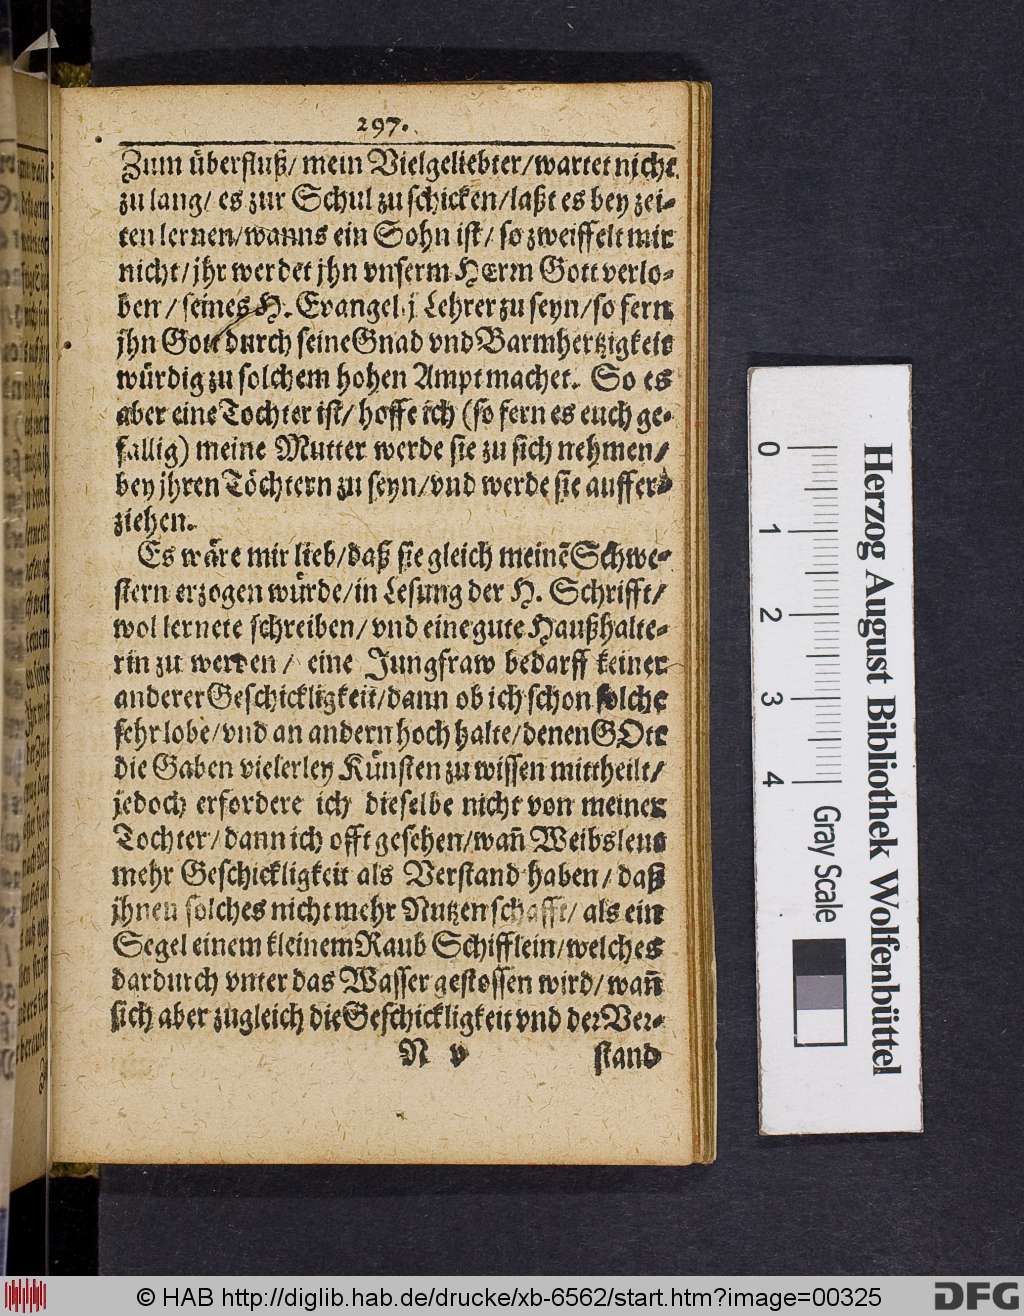 297.
Zum überfluß/ mein Vielgeliebter/wartet nicht
zu lang/ es zur Schul zu schicken/laßt es bey zei-
ten lernen/wanns ein Sohn ist/ so zweiffelt mir
nicht/jhr werdet jhn vnserm Herrn Gott verlo-
ben/ seines H. Evangelij Lehrer zu seyn/so fern
jhn Gott durch seine Gnad vnd Barmhertzigkeit
würdig zu solchem hohen Ampt machet. So es
aber eine Tochter ist/ hoffe ich (so fern es euch ge-
fällig) meine Mutter werde sie zu sich nehmen/
bey jhren Töchtern zu seyn/vnd werde sie auffer-
ziehen.
Es wäre mir lieb/daß sie gleich meinẽ Schwe-
stern erzogen würde/in Lesung der H. Schrifft/
wol lernete schreiben/ vnd eine gute Haußhalte-
rin zu werden/ eine Jungfraw bedarff keiner
anderer Geschickligkeit/dann ob ich schon solche
sehr lobe/vnd an andern hoch halte/denen GOtt
die Gaben vielerley Künsten zu wissen mittheilt/
jedoch erfordere ich dieselbe nicht von meiner
Tochter/dann ich offt gesehen/wañ Weibsleut
mehr Geschickligkeit als Verstand haben/ daß
jhnen solches nicht mehr Nutzen schafft/ als ein
Segel einem kleinem Raub Schifflein/welches
dardurch vnter das Wasser gestossen wird/wañ
sich aber zugleich die Geschickligkeit vnd der Ver-
N v stand
0 1 2 3 4
Gray Scale
Herzog August Bibliothek Wolfenbüttel
© HAB http://diglib.hab.de/drucke/xb-6562/start.htm?image=00325
DFG